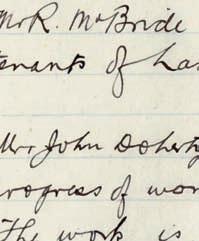 Mr R. McBride
tenants of
Mr John Doherty
progress of
The work is